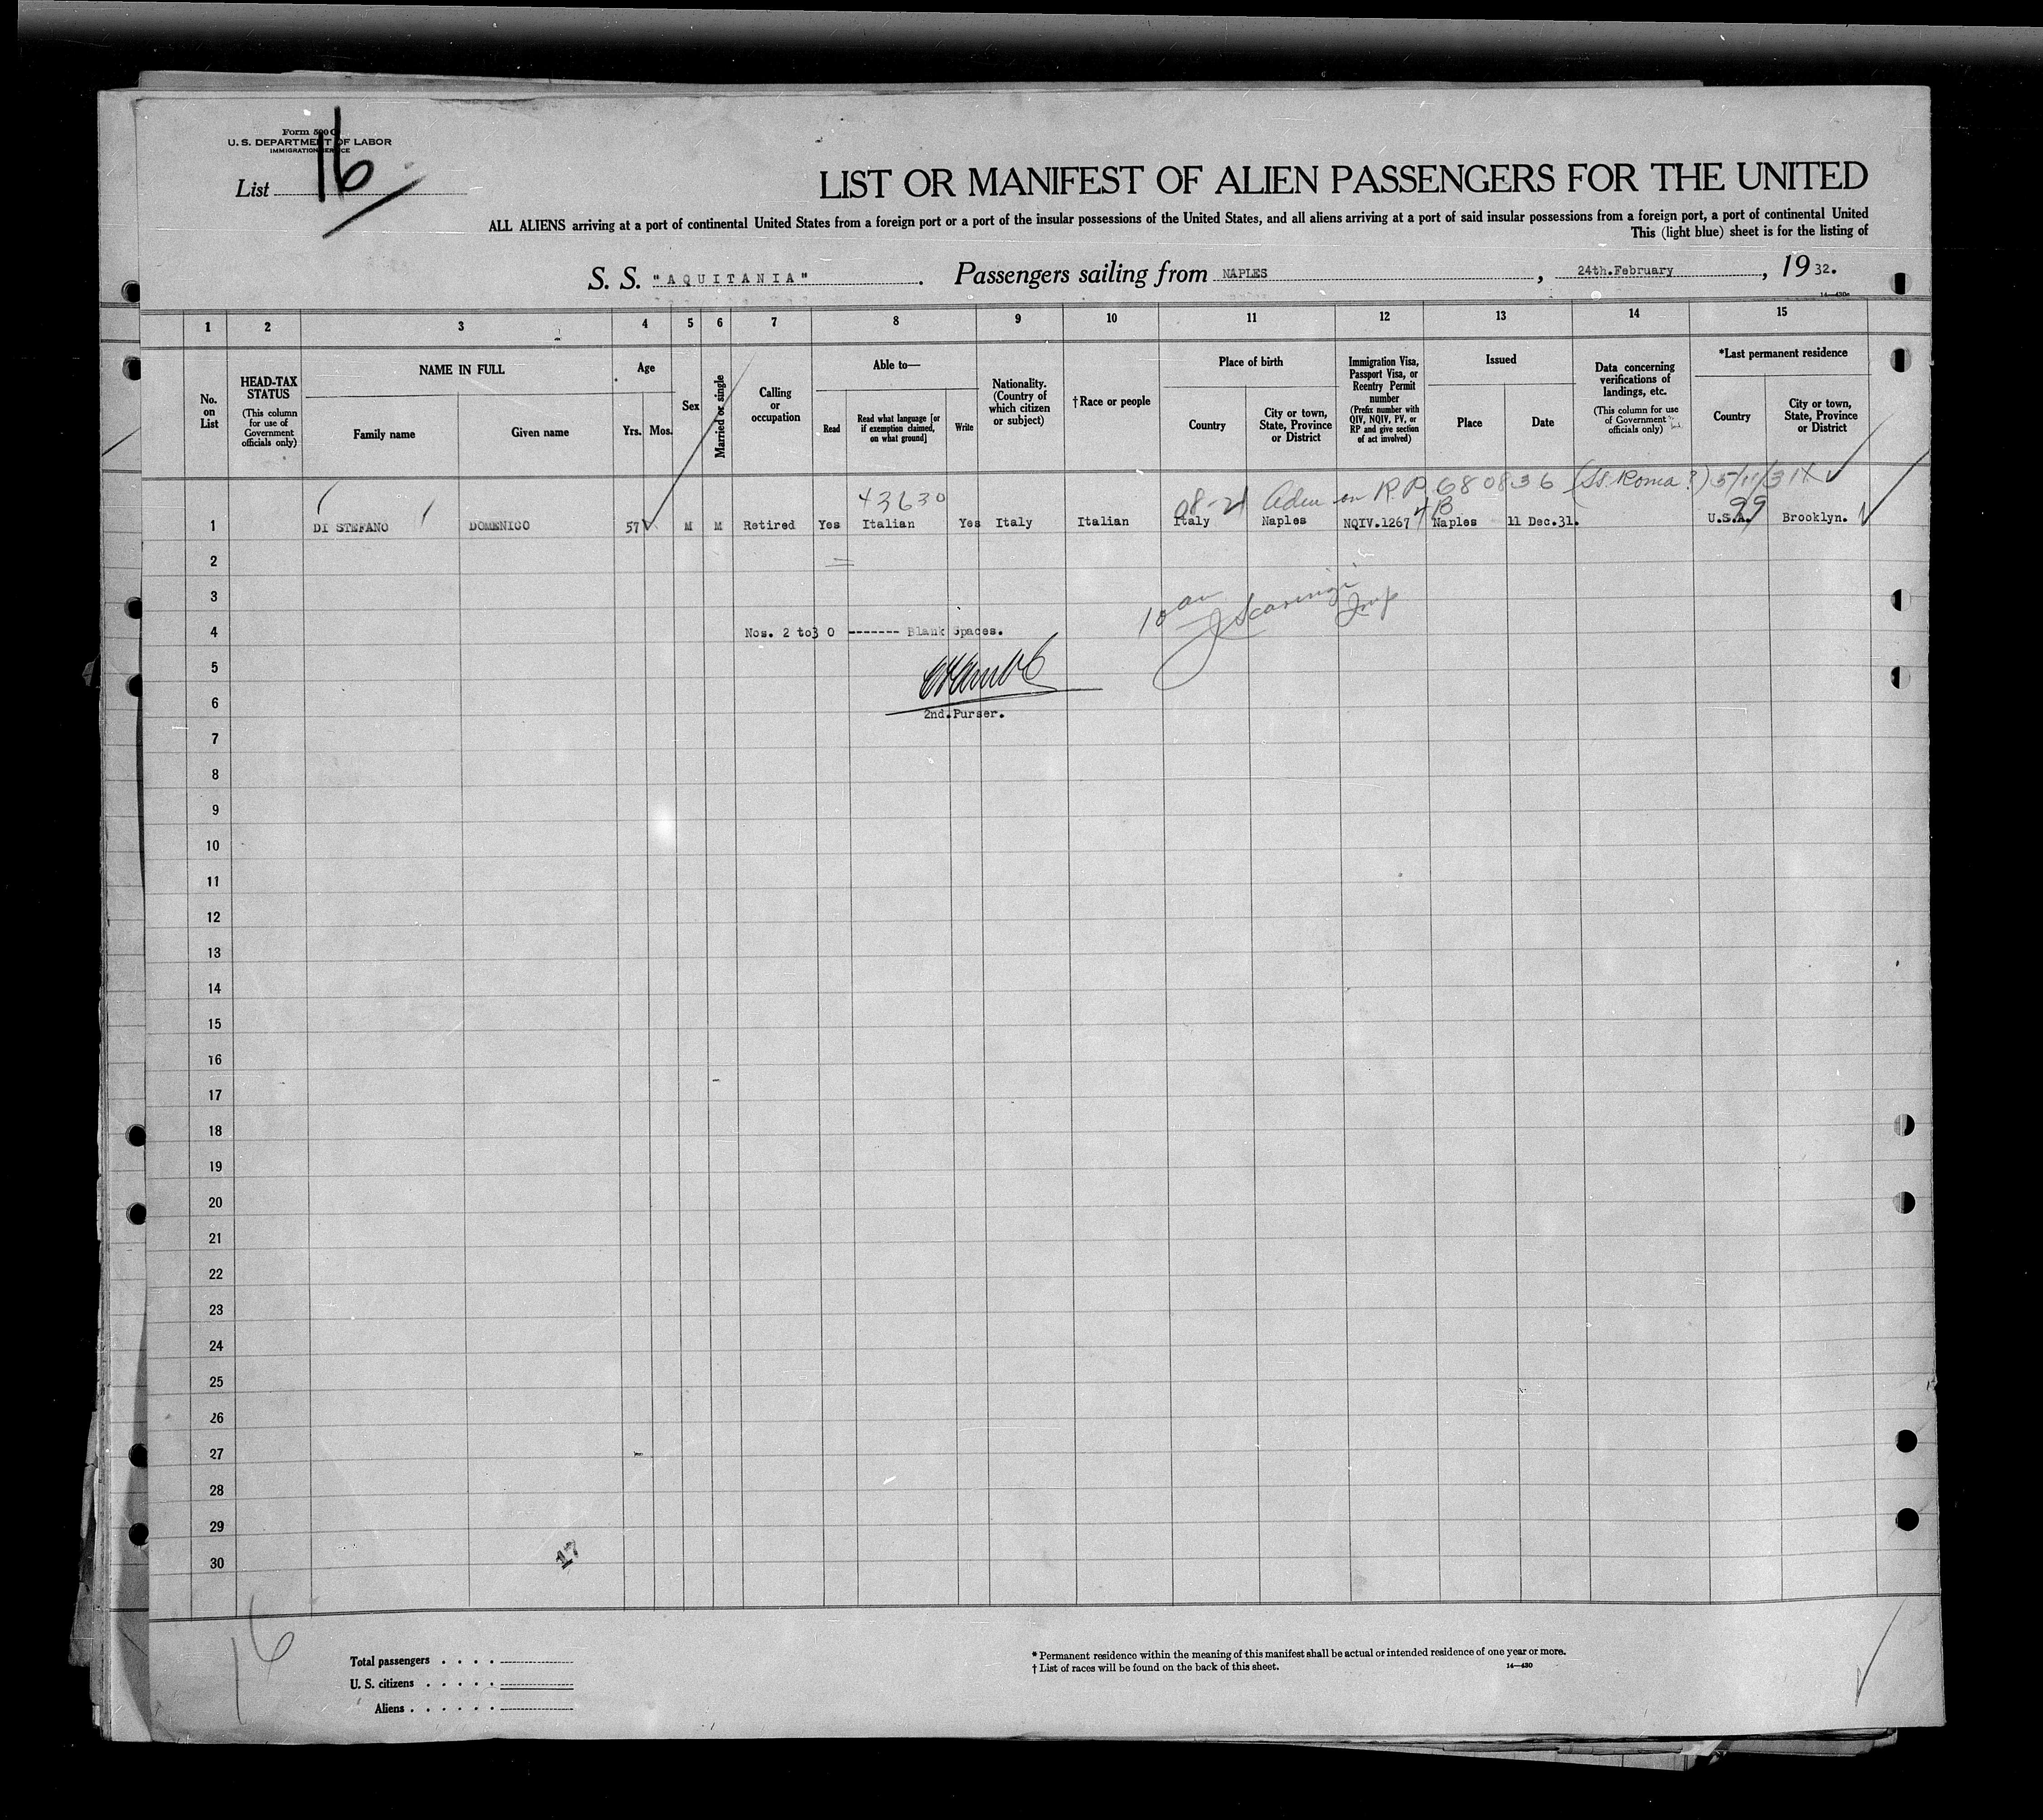 Form 500 C
U. S. DEPARTMENT OF LABOR
IMMIGRATION SERVICE
List 16
LIST OR MANIFEST OF ALIEN PASSENGERS FOR THE UNITED
ALL ALIENS arriving at a port of continental United States from a foreign port or a port of the insular possessions of the United States, and all aliens arriving at a port of said insular possessions from a foreign port, a port of continental United
This (light blue) sheet is for the listing of
S. S. "AQUITANIA". Passengers sailing from NAPLES, 24th.February, 1932.
1 2 3 4 5 6 7 8 9 10 11 12 13 14 15
No. on List
HEAD-TAX STATUS (This column for use of Government officials only)
NAME IN FULL
Family name Given name
Age
Yrs. Mos.
Sex
Married or single
Calling or occupation
Able to—
Read Read what language [or if exemption claimed, on what ground] Write
Nationality. (Country of which citizen or subject)
†Race or people
Place of birth
Country City or town, State, Province or District
Immigration Visa, Passport Visa, or Reentry Permit number (Prefix number with QIV, NQIV, PV, or RP and give section of act involved)
Issued
Place Date
Data concerning verifications of landings, etc. (This column for use of Government officials only)
*Last permanent residence
Country City or town, State, Province or District
43630 08-21 on R.P. 680836 (SS. Roma?) 5/11/31
1 DI STEFANO DOMENICO 57 M M Retired Yes Italian Yes Italy Italian Italy Naples NQIV.1267 4B Naples 11 Dec.31. U.S.A. 99 Brooklyn.
2
3
4 Nos. 2 to30 ------- Blank Spaces.
5
6
2nd.Purser.
7
8
9
10
11
12
13
14
15
16
17
18
19
20
21
22
23
24
25
26
27
28
29
30
17
16
Total passengers . . . .
U. S. citizens . . . . .
Aliens . . . . . .
* Permanent residence within the meaning of this manifest shall be actual or intended residence of one year or more.
† List of races will be found on the back of this sheet.
14—430